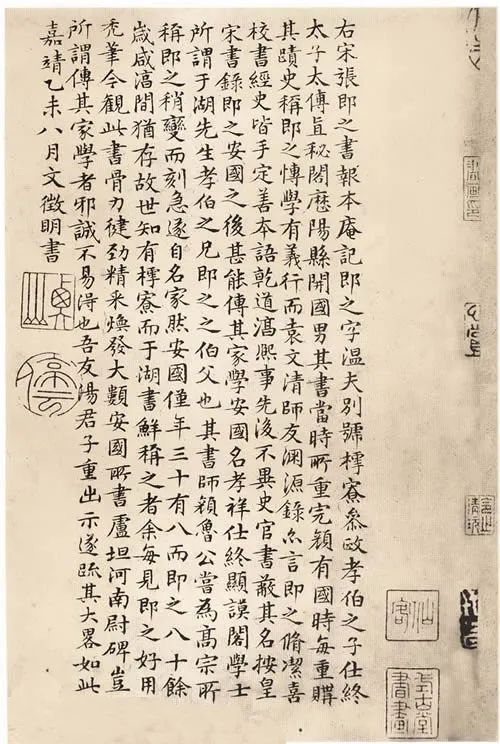 右宋張即之書報本庵記即之字溫夫別號樗寮叅政孝伯之子仕終
太子太傅直秘閣歷陽縣開國男其書當時所重完顏有國時每重購
其蹟史稱即之慱學有義行而袁文清師友淵源錄亦言即之脩潔喜
校書經史皆手定善本語乾道淳熈事先後不異史官書蓺其名按皇
宋書錄即之安國之後甚能傳其家學安國名孝祥仕終顯謨閣學士
所謂于湖先生孝伯之兄即之之伯父也其書師顏魯公嘗為髙宗所
稱即之稍變而刻急遂自名家然安國僅年三十有八而即之八十餘
歲咸淳間猶存故世知有樗寮而于湖書鮮稱之者余每見即之好用
禿筆今觀此書骨力健勁精采煥發大類安國所書盧坦河南尉碑豈
所謂傳其家學者邪誠不易得也吾友湯君子重出示遂疏其大畧如此
嘉靖乙未八月文徵明書
仙客
書畫